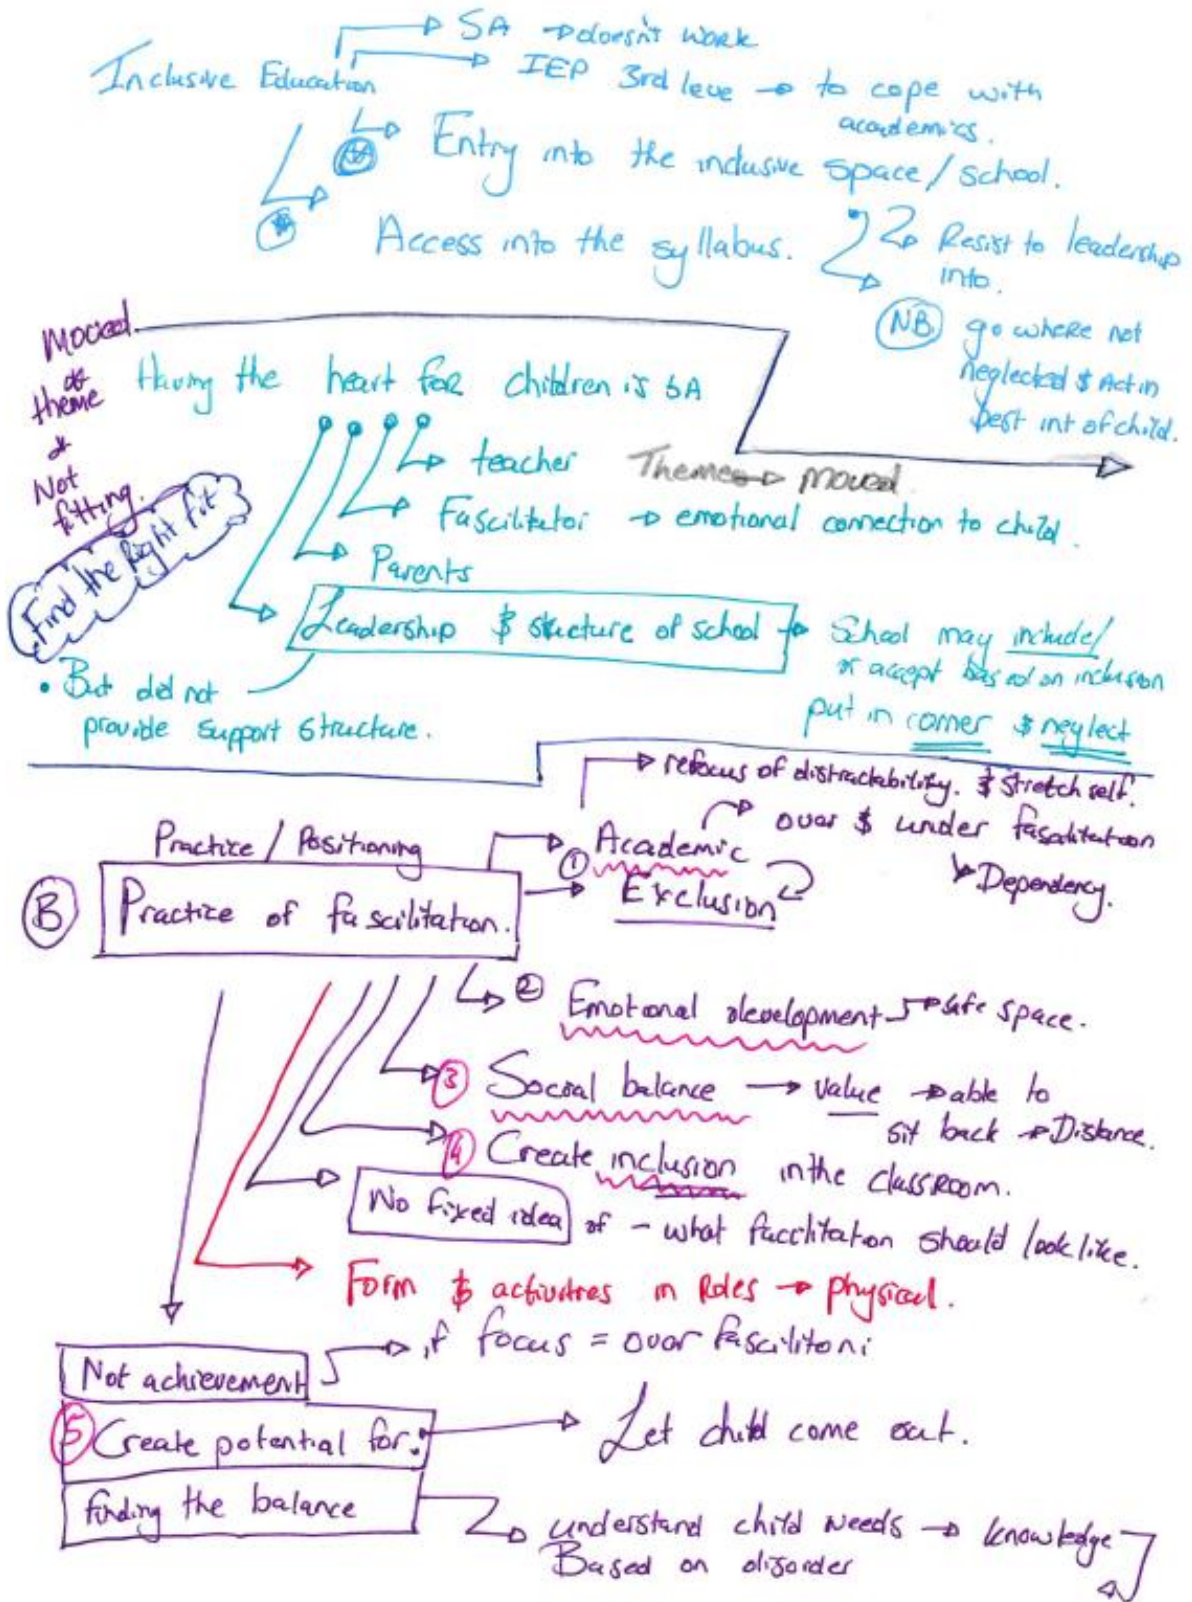 SA → doesn't work
Inclusive Education
IEP 3rd leve → to cope with
academics.
Entry into the inclusive space / school.
Access into the syllabus.
Resist to leadership
into.
NB go where not
neglected $ Act in
best int of child.
Moved
theme
Not
fitting.
Find the Right Fit
Having the heart for children is SA
teacher
Themes → moved
Fascilitator → emotional connection to child.
Parents
Leadership $ structure of school → School may include/
or accept based on inclusion
put in corner $ neglect
• But did not
provide support structure.
refocus of distractability. $ stretch self.
over $ under fascilitation
Dependency.
Practice / Positioning
① Academic
Exclusion
B Practice of fascilitation.
② Emotional development → safe space.
③ Social balance → value → able to
sit back → Distance.
④ Create inclusion in the classroom.
No fixed idea of – what facilitation should look like.
Form $ activities in Roles → physical.
Not achievement → if focus = over
⑤ Create potential for: → Let child come out.
finding the balance
understand child needs → knowledge
Based on disorder